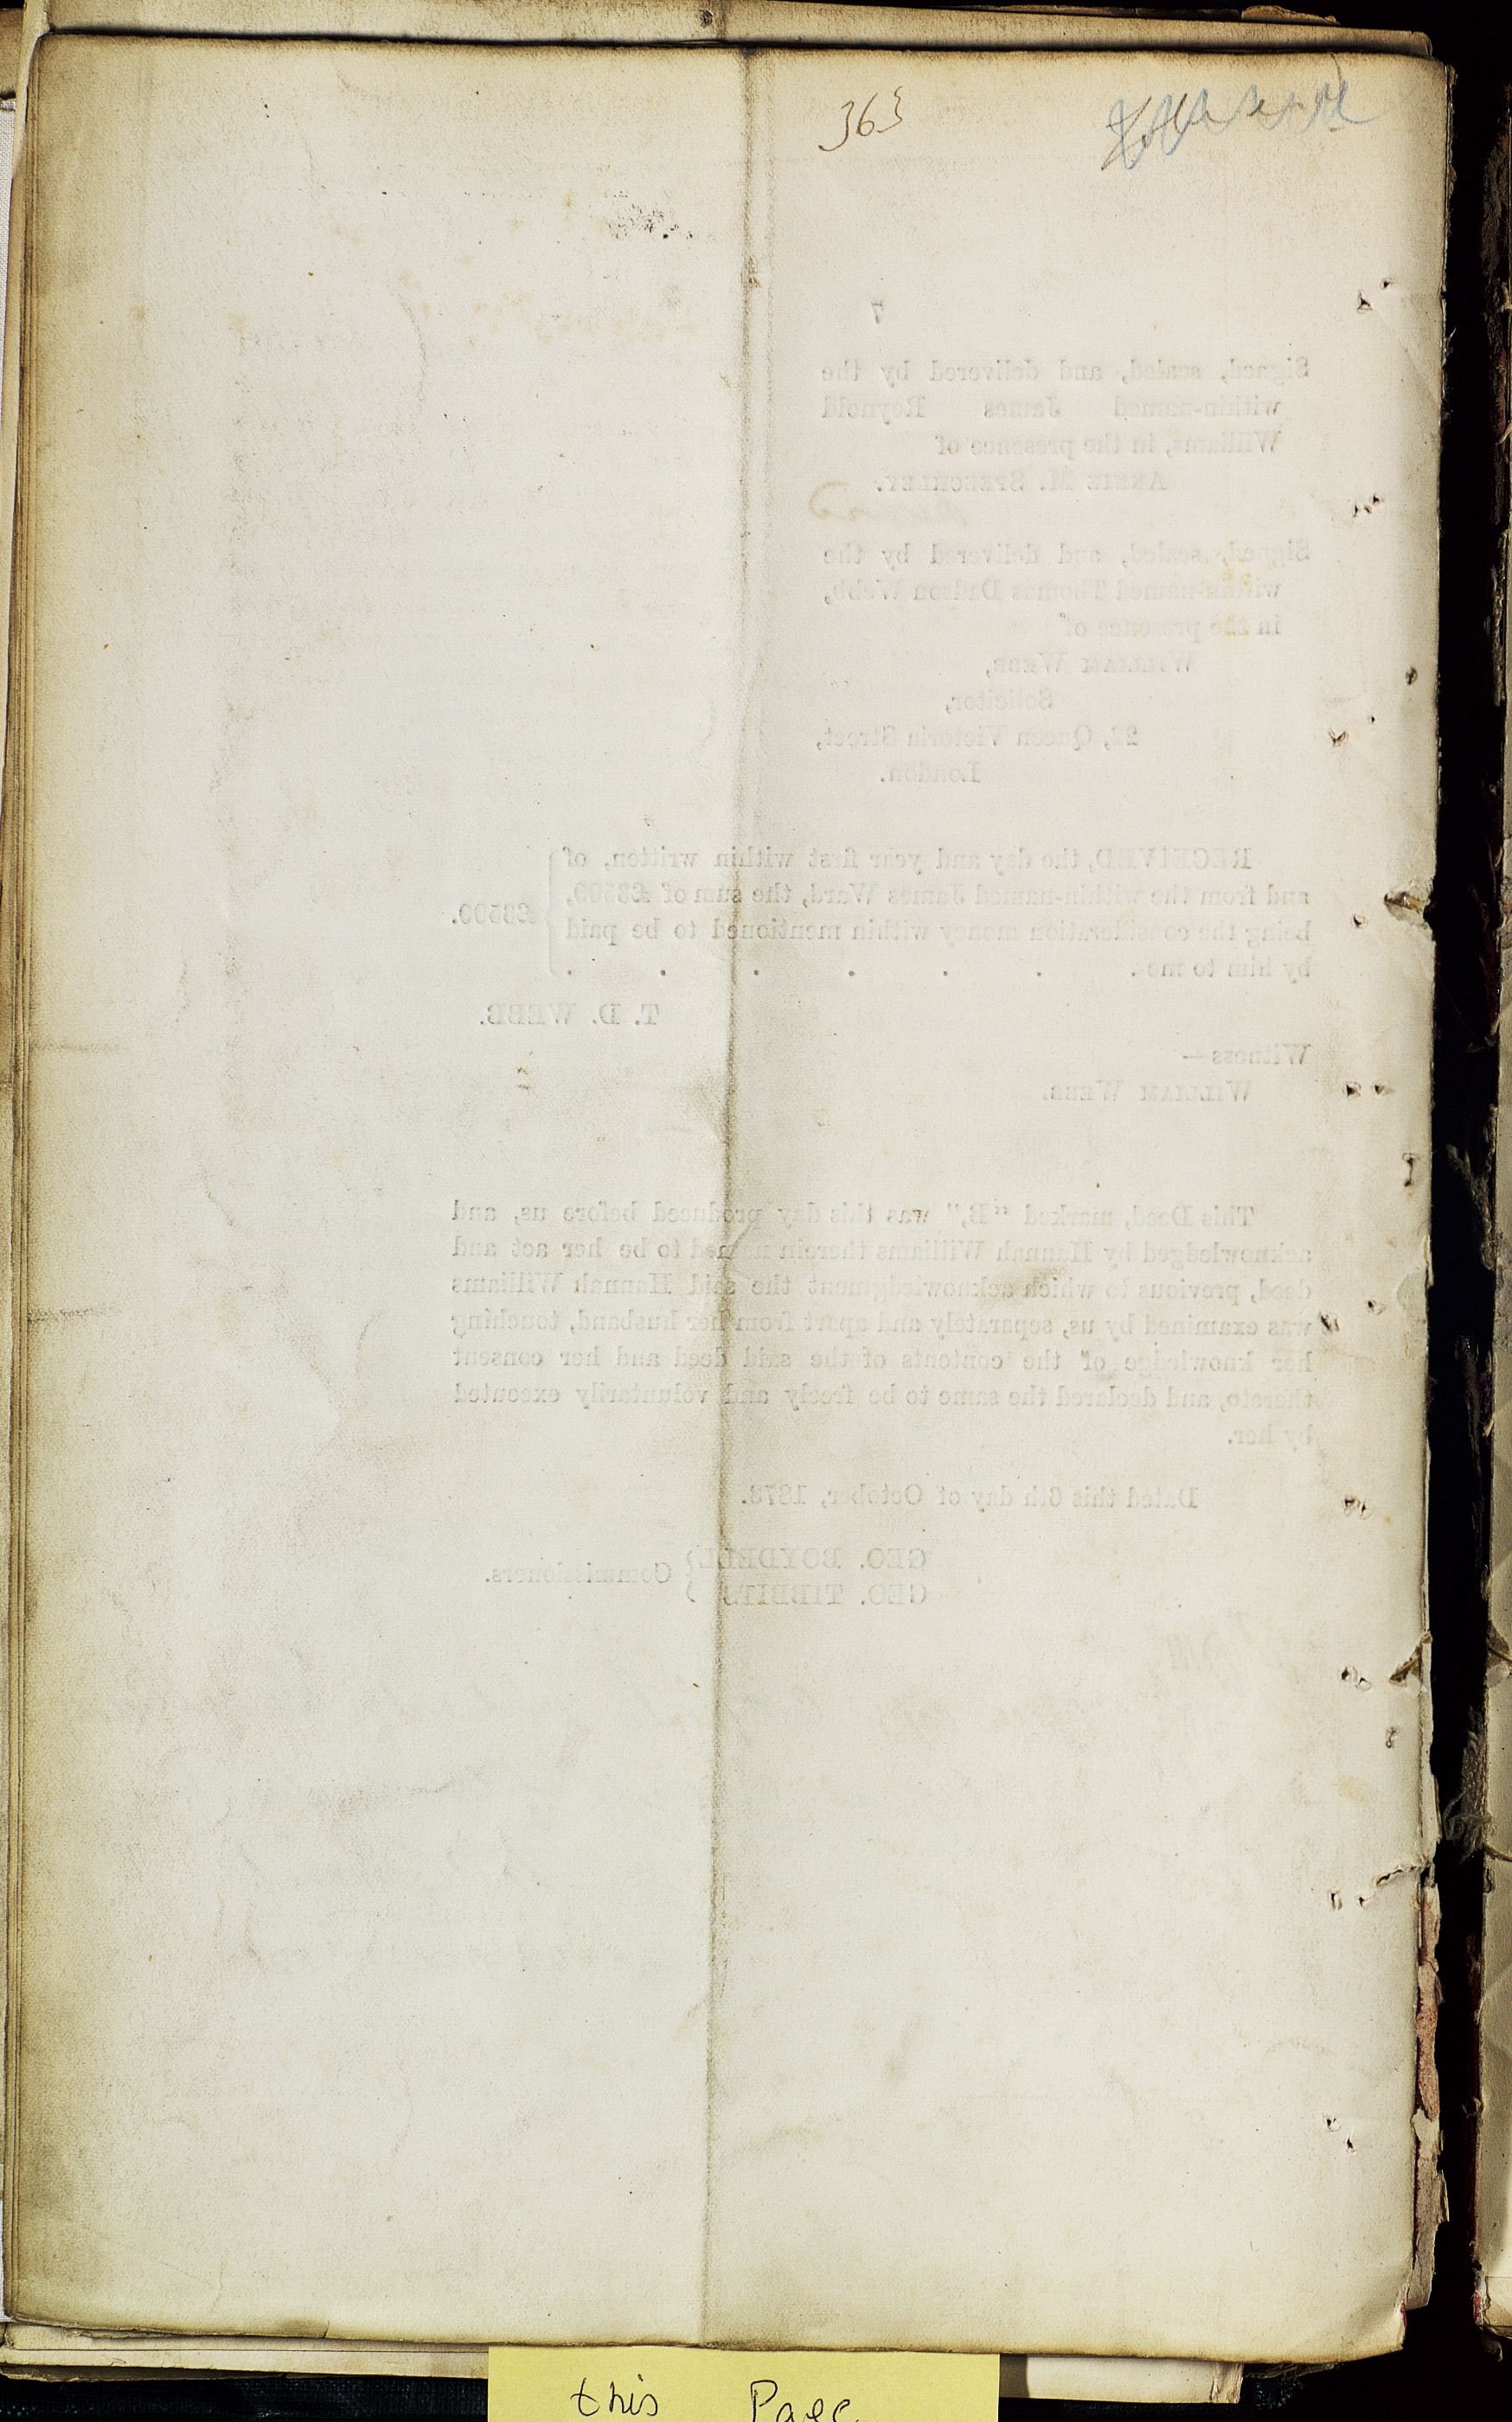 363
7
Signed, sealed, and delivered by the
within-named James Reynold
Williams, in the presence of
ANNIE M. SPEECHLEY.
Signed, sealed, and delivered by the
within-named Thomas Dadson Webb,
in the presence of
WILLIAM WEBB,
Solicitor,
Queen Victoria Street,
London.
RECEIVED, the day and year first within written, of
and from the within-named James Ward, the sum of £3500,
being the consideration money within mentioned to be paid
by him to me . . . . . . .
£3500.
T. D. WEBB.
Witness—
WILLIAM WEBB.
This Deed, marked "B," was this day produced before us, and
acknowledged by Hannah Williams therein named to be her act and
deed, previous to which acknowledgment the said Hannah Williams
was examined by us, separately and apart from her husband, touching
her knowledge of the contents of the said deed and her consent
thereto, and declared the same to be freely and voluntarily executed
by her.
Dated this 6th day of October, 1873.
GEO. BOYDELL
GEO. TIBBITS
} Commissioners.
this Page